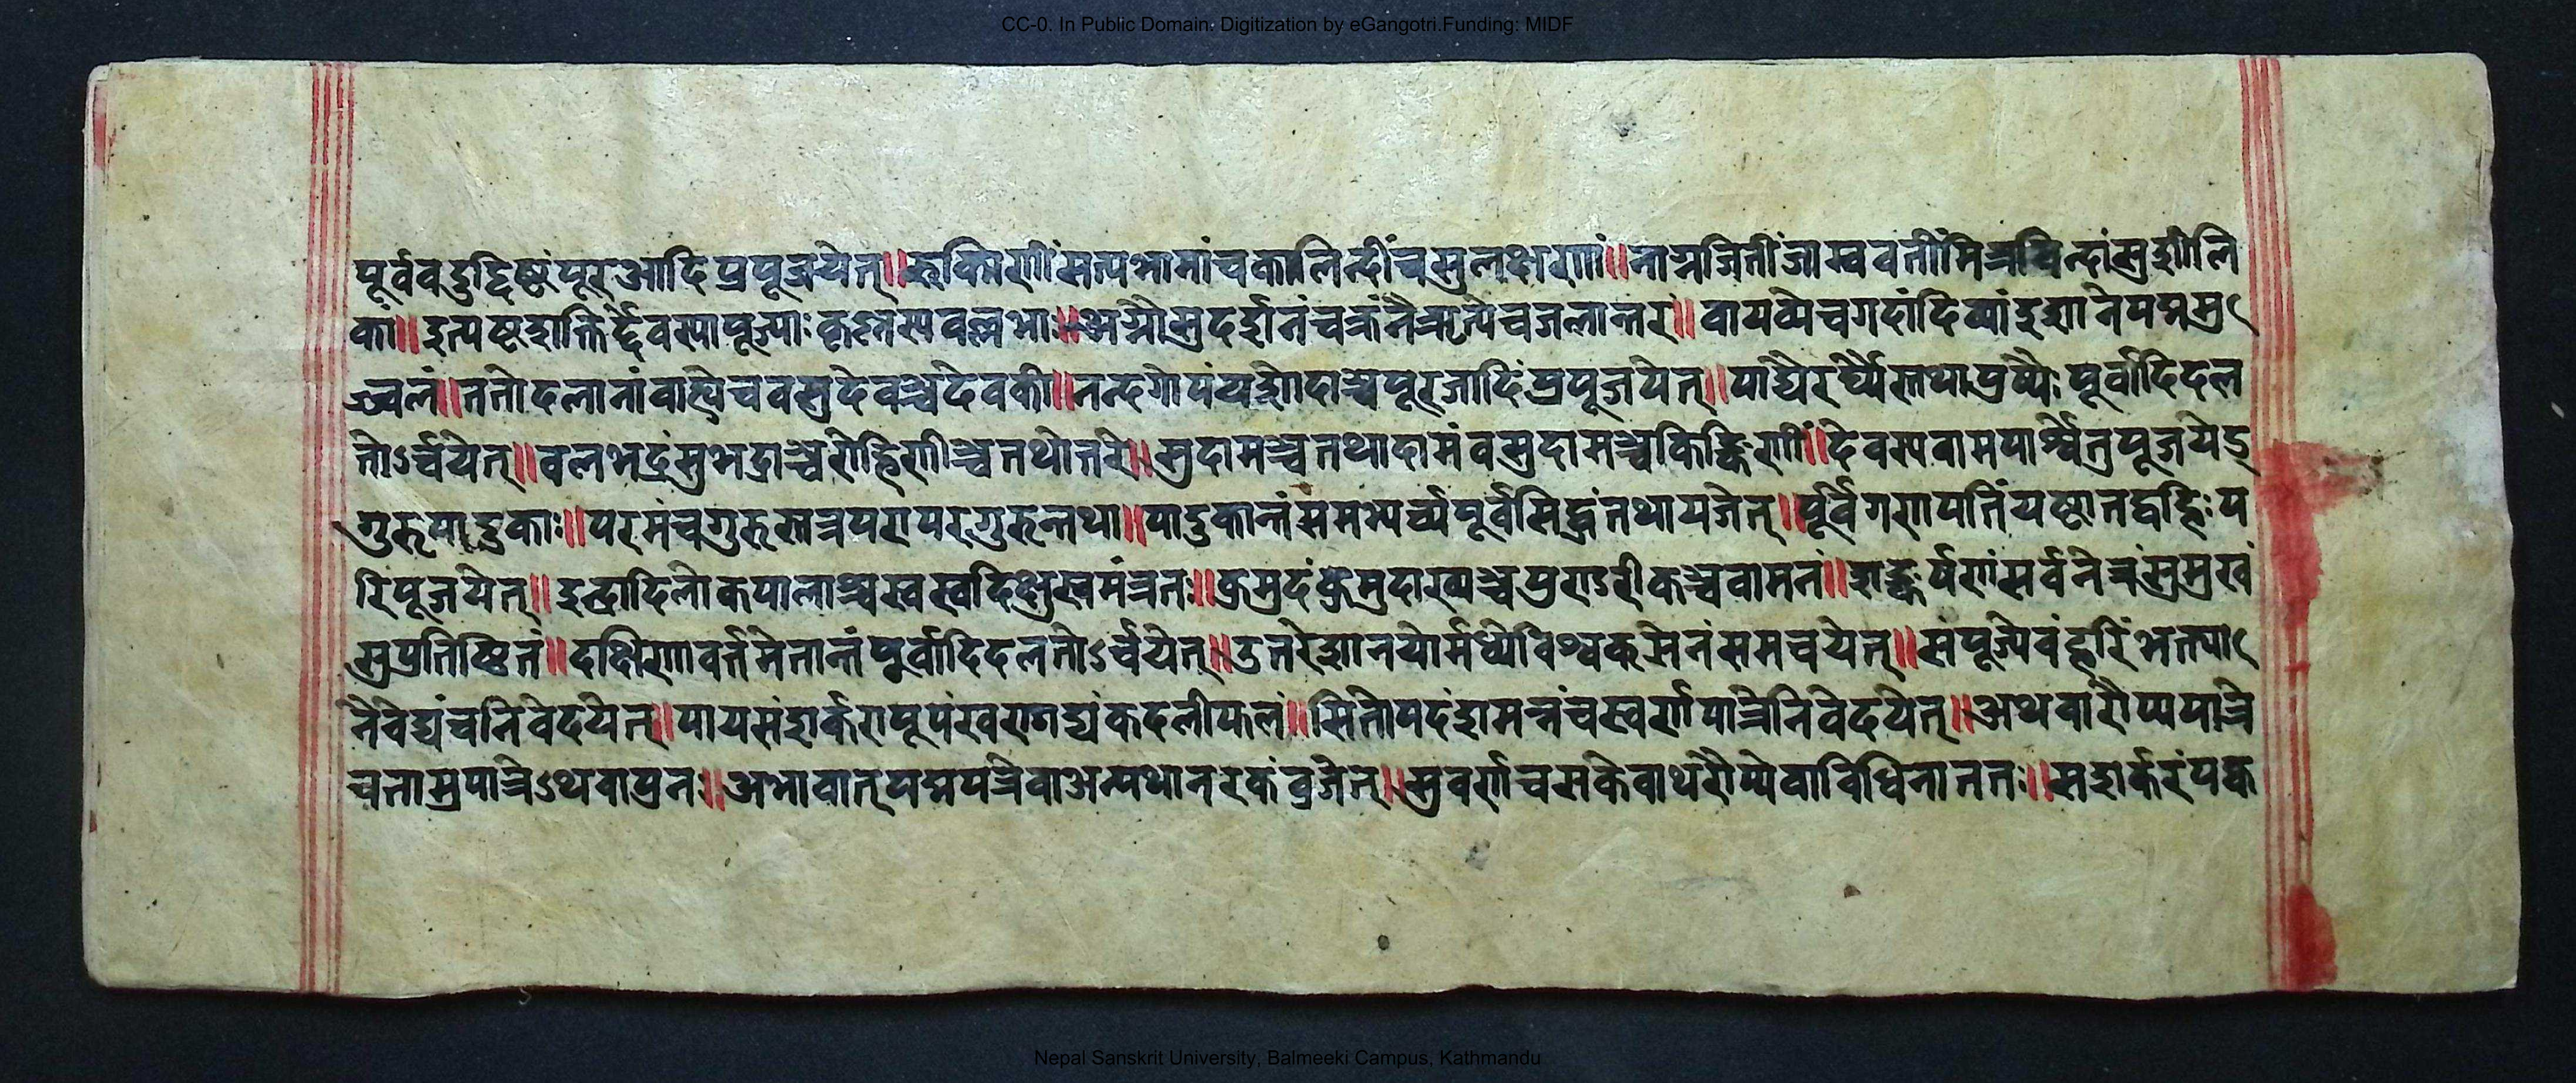 CC-0. In Public Domain. Digitization by eGangotri.Funding: MIDF
पूर्ववदुद्दिष्टंपूरआदिप्रपूजयेत्॥रुक्मिणीँसत्यभामांचकालिन्दीँचसुलक्षणां॥नाग्नजितीँजाम्ववतीँमित्रविन्दांसुशीलि
कां॥इत्यष्टशक्तिर्द्देवस्यापूज्याःकृष्णस्यवल्लभाः॥अग्नौसुदर्शनंचक्रंनैऋत्येचजलान्तरं॥वायव्येचगदांदिव्यांइशानेपद्ममु
ज्वलं॥ततोदलानांवाह्येचवसुदेवञ्चदेवकी॥नन्दगोपंयशोदाञ्चपूरजादिंप्रपूजयेत्॥पाद्यैरर्घ्यैस्तथापुष्पैःपूर्वादिदल
तोऽर्च्चयेत्॥वलभद्रंसुभद्राञ्चरोहिणीञ्चतथोतरे॥सुदामञ्चतथादामंवसुदामञ्चकिङ्किणी॥देवस्यवामपार्श्वेतुपूजयेद्
गुरुपादुकाः॥परमंचगुरुस्तत्रपरापरगुरुन्तथा॥पादुकान्तंसमभ्यर्च्यपूर्वसिद्धंतथायजेत्॥पूर्वेगणपतिंयष्टातद्वहिःप
रिपूजयेत्॥इन्द्रादिलोकपालाश्चस्वस्वदिक्षुस्वमंत्रतः॥कुमुदंकुमुदाख्यञ्चपुण्डरीकञ्चवामनं॥शङ्कुर्यणंसर्वनेत्रंसुमुखं
सुप्रतिष्ठितं॥दक्षिणावर्त्तमेतान्तंपूर्वादिदलतोऽर्च्चयेत्॥उतरेशानयोर्मध्येविश्वकसेनंसमचयेत्॥संपूज्येवंहरिंभक्त्या
नैवेद्यंचनिवेदयेत्॥पायसंशर्करापूपंखण्डाद्यंकदलीफलं॥सितोपदंशमन्नंचस्वर्णपात्रेनिवेदयेत्॥अथवारौप्यपात्रे
चताम्रपात्रेऽथवापुनः॥अभावात्पद्मपत्रेवाअन्यथानरकंव्रजेत्॥सुवर्णचसकेवाथरौप्येवाविधिनाततः॥सशर्करंपक्व
Nepal Sanskrit University, Balmeeki Campus, Kathmandu